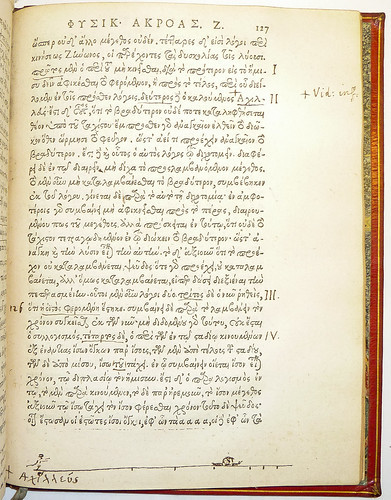 ΦΥΣΙΚ· ΑΚΡΟΑΣ. Ζ. 127
ὥσπερ οὐδ' ἄλλο μέγεθος οὐδέν. τέτταρες δ' εἰσὶ λόγοι περὶ
κινήσεως Ζήνωνος, οἱ παρέχοντες τὰς δυσκολίας τοῖς λύουσι.
πρῶτος μὲν ὁ περὶ τοῦ μὴ κινεῖσθαι, διὰ τὸ πρότερον εἰς τὸ ἥμι- I
συ δεῖν ἀφικέσθαι τὸ φερόμενον, ἢ πρὸς τὸ τέλος, περὶ οὗ διεί-
λομεν ἐν τοῖς πρότερον λόγοις. δεύτερος δ' ὁ καλούμενος Ἀχιλ- II
+ Vid. inf.
λεύς. ἔστι δ' οὗτος, ὅτι τὸ βραδύτερον οὐδέποτε καταληφθήσεται
θέον ὑπὸ τοῦ ταχίστου. ἔμπροσθεν γὰρ ἀναγκαῖον ἐλθεῖν τὸ διῶ-
κον, ὅθεν ὥρμησε τὸ φεῦγον, ὥστ' ἀεί τι προέχειν ἀναγκαῖον τὸ
βραδύτερον. ἔστι δὲ καὶ οὗτος ὁ αὐτὸς λόγος τῷ διχοτομεῖν. διαφέ-
ρει δὲ ἐν τῷ διαιρεῖν μὴ δίχα τὸ προσλαμβανόμενον μέγεθος.
τὸ μὲν οὖν μὴ καταλαμβάνεσθαι τὸ βραδύτερον, συμβέβηκεν
ἐκ τοῦ λόγου. γίνεται δὲ παρὰ ταὐτὸ τῇ διχοτομίᾳ· ἐν ἀμφο-
τέροις γὰρ συμβαίνει μὴ ἀφικνεῖσθαι πρὸς τὸ πέρας, διαιρου-
μένου πως τοῦ μεγέθους. ἀλλὰ πρόσκειται ἐν τούτῳ, ὅτι οὐδὲ τὸ
τάχιστον τετραγῳδημένον ἐν τῷ διώκειν τὸ βραδύτερον. ὥστ' ἀ-
νάγκη καὶ τὴν λύσιν εἶναι τὴν αὐτήν. τὸ δ' ἀξιοῦν ὅτι τὸ προέ-
χον οὐ καταλαμβάνεται, ψεῦδος. ὅτε γὰρ προέχει, οὐ καταλαμ-
βάνεται, ἀλλ' ὅμως καταλαμβάνεται, εἴπερ δώσει διεξιέναι τὴν
πεπερασμένην. οὗτοι μὲν οὖν λόγοι δύο. τρίτος δὲ ὁ νῦν ῥηθείς, III.
ὅτι ἡ ὀϊστὸς φερομένη ἕστηκε. συμβαίνει δὲ παρὰ τὸ λαμβάνειν τὸν
χρόνον συγκεῖσθαι ἐκ τῶν νῦν. μὴ διδομένου γὰρ τούτου, οὐκ ἔσται
ὁ συλλογισμός. τέταρτος δὲ, ὁ περὶ τῶν ἐν τῷ σταδίῳ κινουμένων IV.
ἐξ ἐναντίας ἴσων ὄγκων παρ' ἴσους, τῶν μὲν ἀπὸ τέλους τοῦ σταδίου,
τῶν δὲ ἀπὸ μέσου, ἴσῳ τάχει. ἐν ᾧ συμβαίνειν οἴεται ἴσον εἶναι
χρόνον, τῷ διπλασίῳ τὸν ἥμισυν. ἔστι δ' ὁ παραλογισμὸς ἐν
τῷ, τὸ μὲν παρὰ κινούμενον, τὸ δὲ παρ' ἠρεμοῦν, τὸ ἴσον μέγεθος
ἀξιοῦν τῷ ἴσῳ τάχει τὸν ἴσον φέρεσθαι χρόνον. τοῦτο δ' ἐστὶ ψεῦδος.
οἷον ἔστωσαν οἱ ἑστῶτες ἴσοι ὄγκοι, ἐφ' ὧν τὰ α α α α, οἱ δ' ἐφ' ὧν τὰ
+ Αχιλλευς